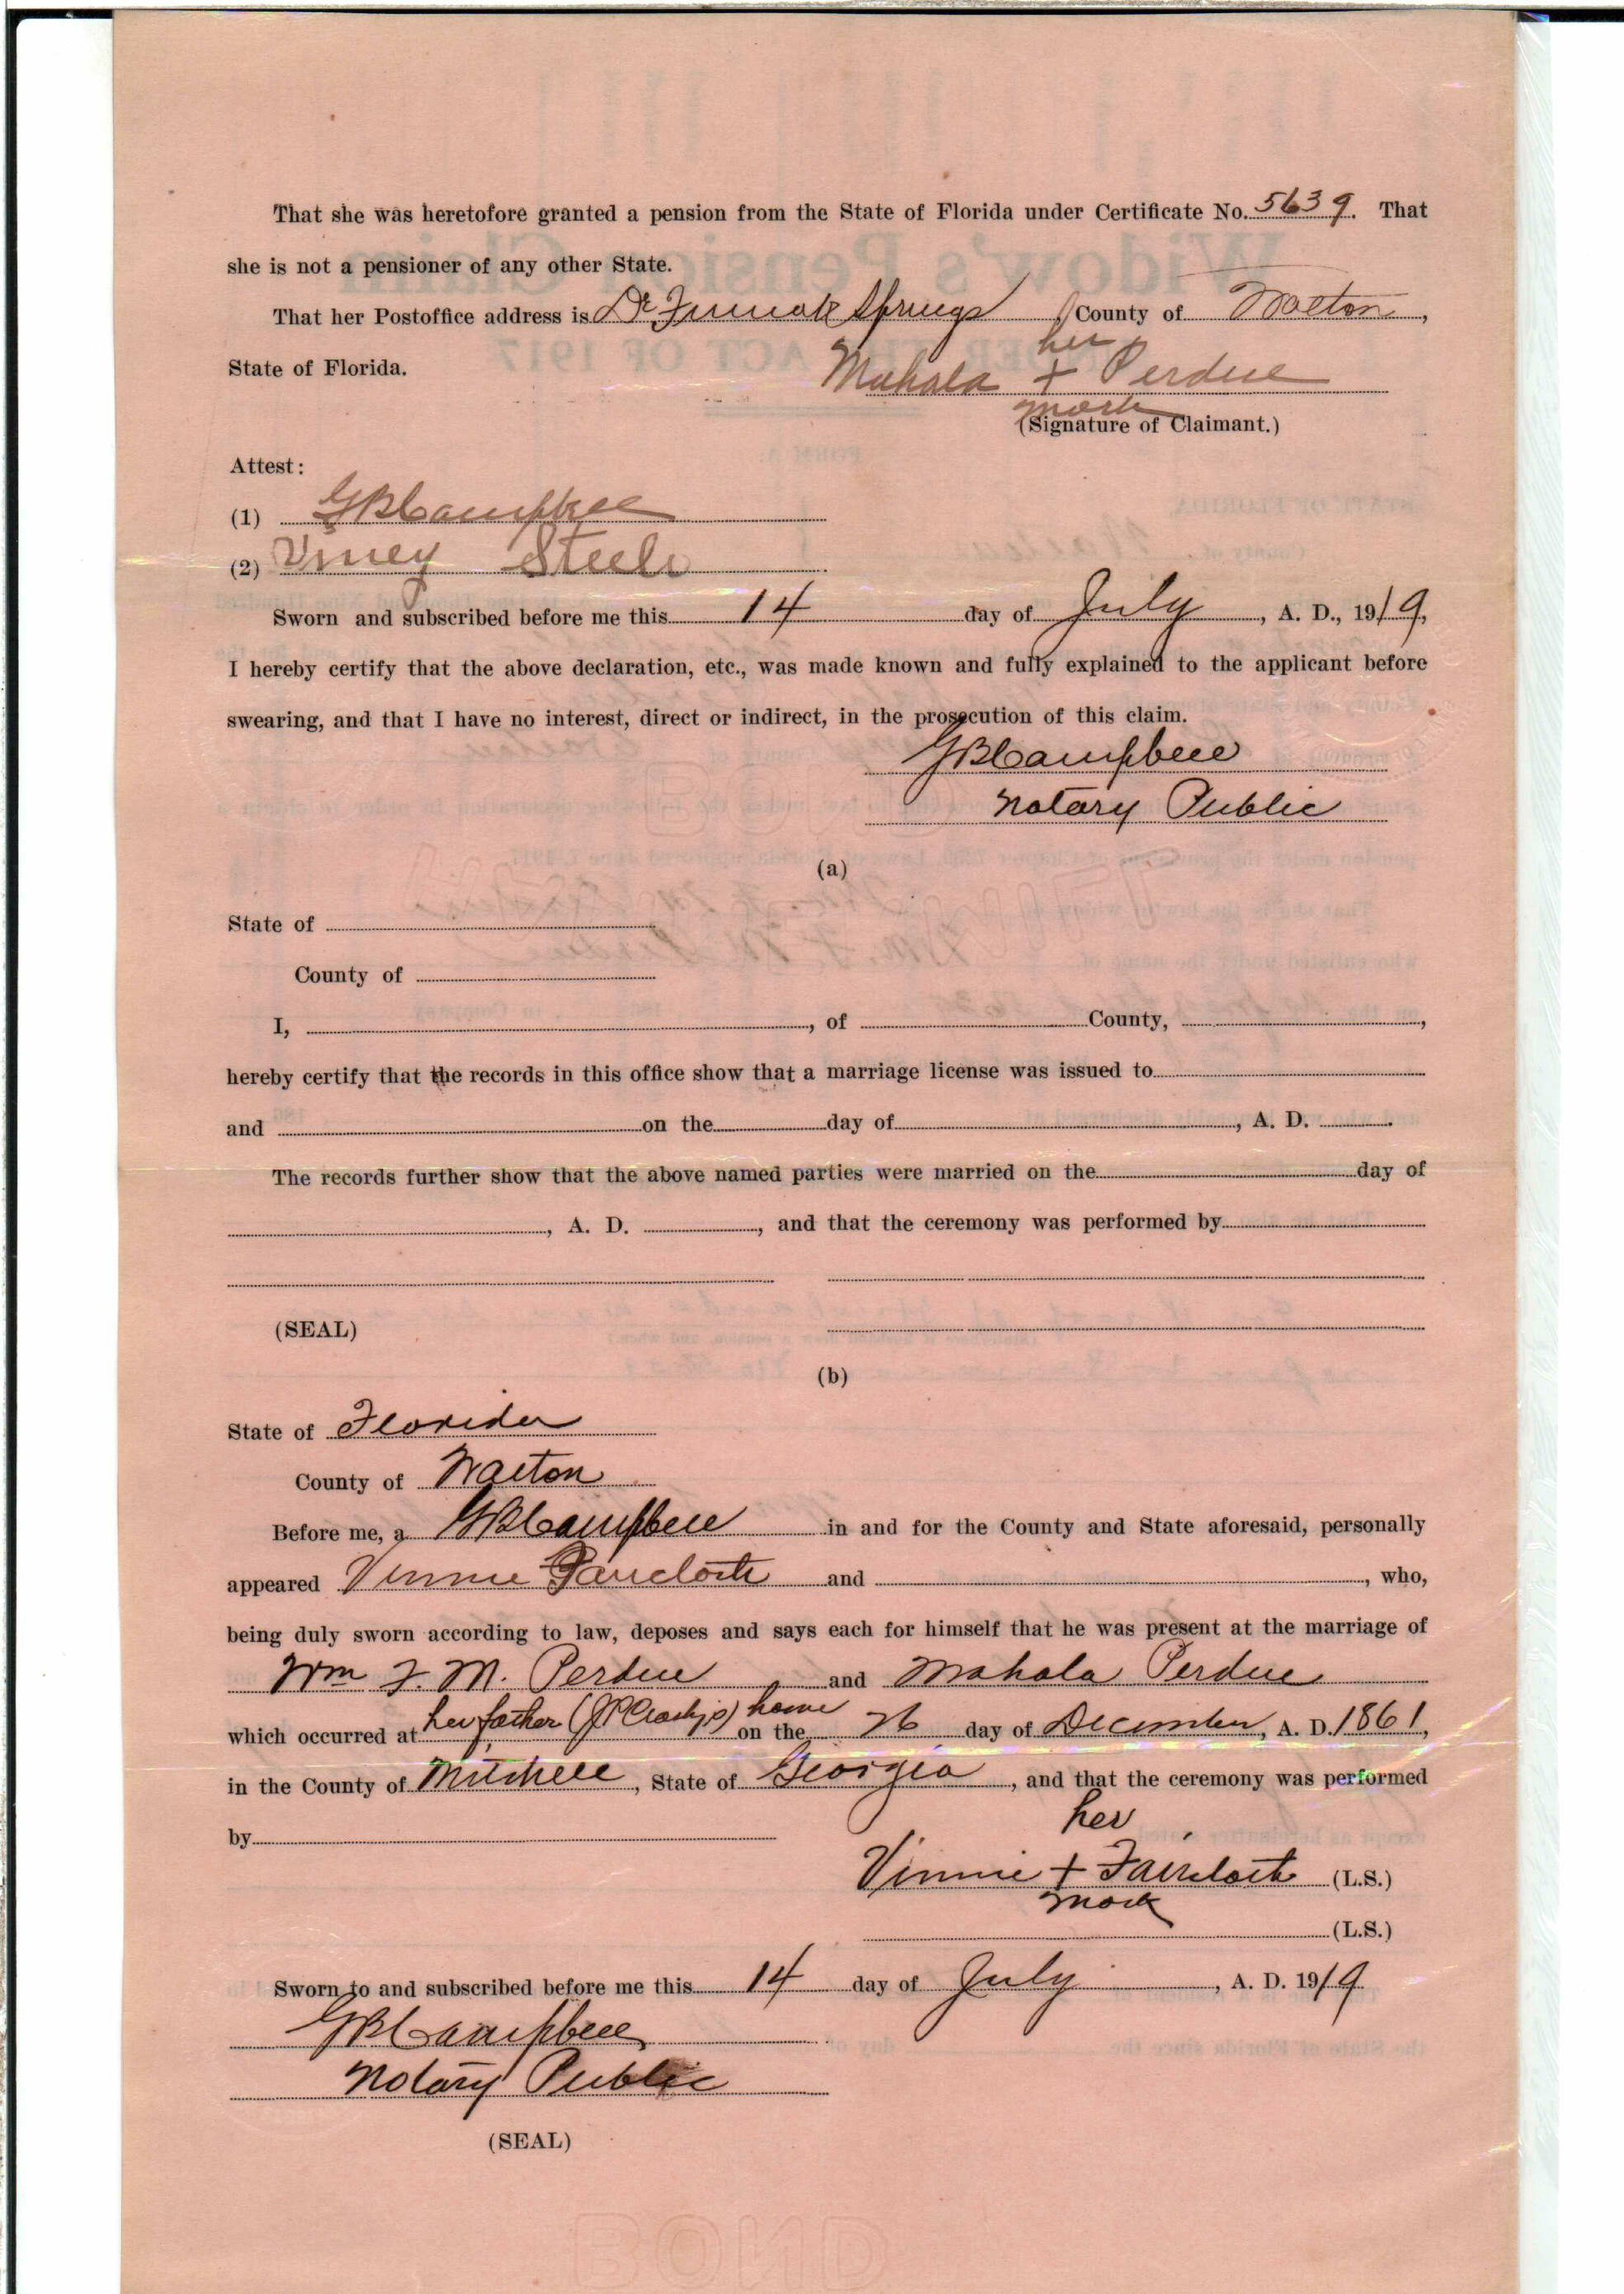 That she was heretofore granted a pension from the State of Florida under Certificate No. 5639. That
she is not a pensioner of any other State.
That her Postoffice address is De Funiak Springs County of Walton,
her
State of Florida. Mahala + Perdue
mark
(Signature of Claimant.)
Attest:
(1) GB Campbell
(2) Viney Steele
Sworn and subscribed before me this 14 day of July, A. D., 1919,
I hereby certify that the above declaration, etc., was made known and fully explained to the applicant before
swearing, and that I have no interest, direct or indirect, in the prosecution of this claim.
GB Campbell
Notary Public
(a)
State of
County of
I, , of County, ,
hereby certify that the records in this office show that a marriage license was issued to
and on the day of , A. D. .
The records further show that the above named parties were married on the day of
, A. D. , and that the ceremony was performed by
(SEAL)
(b)
State of Florida
County of Walton
Before me, a GB Campbell in and for the County and State aforesaid, personally
appeared Vinnie Faircloth and , who,
being duly sworn according to law, deposes and says each for himself that he was present at the marriage of
Wm F. M. Perdue and Mahala Perdue
which occurred at her father home on the 26 day of December, A. D. 1861,
in the County of Mitchell, State of Georgia, and that the ceremony was performed
by
her
Vinnie + Faircloth (L.S.)
mark
(L.S.)
Sworn to and subscribed before me this 14 day of July, A. D. 1919
GB Campbell
Notary Public
(SEAL)
BOND